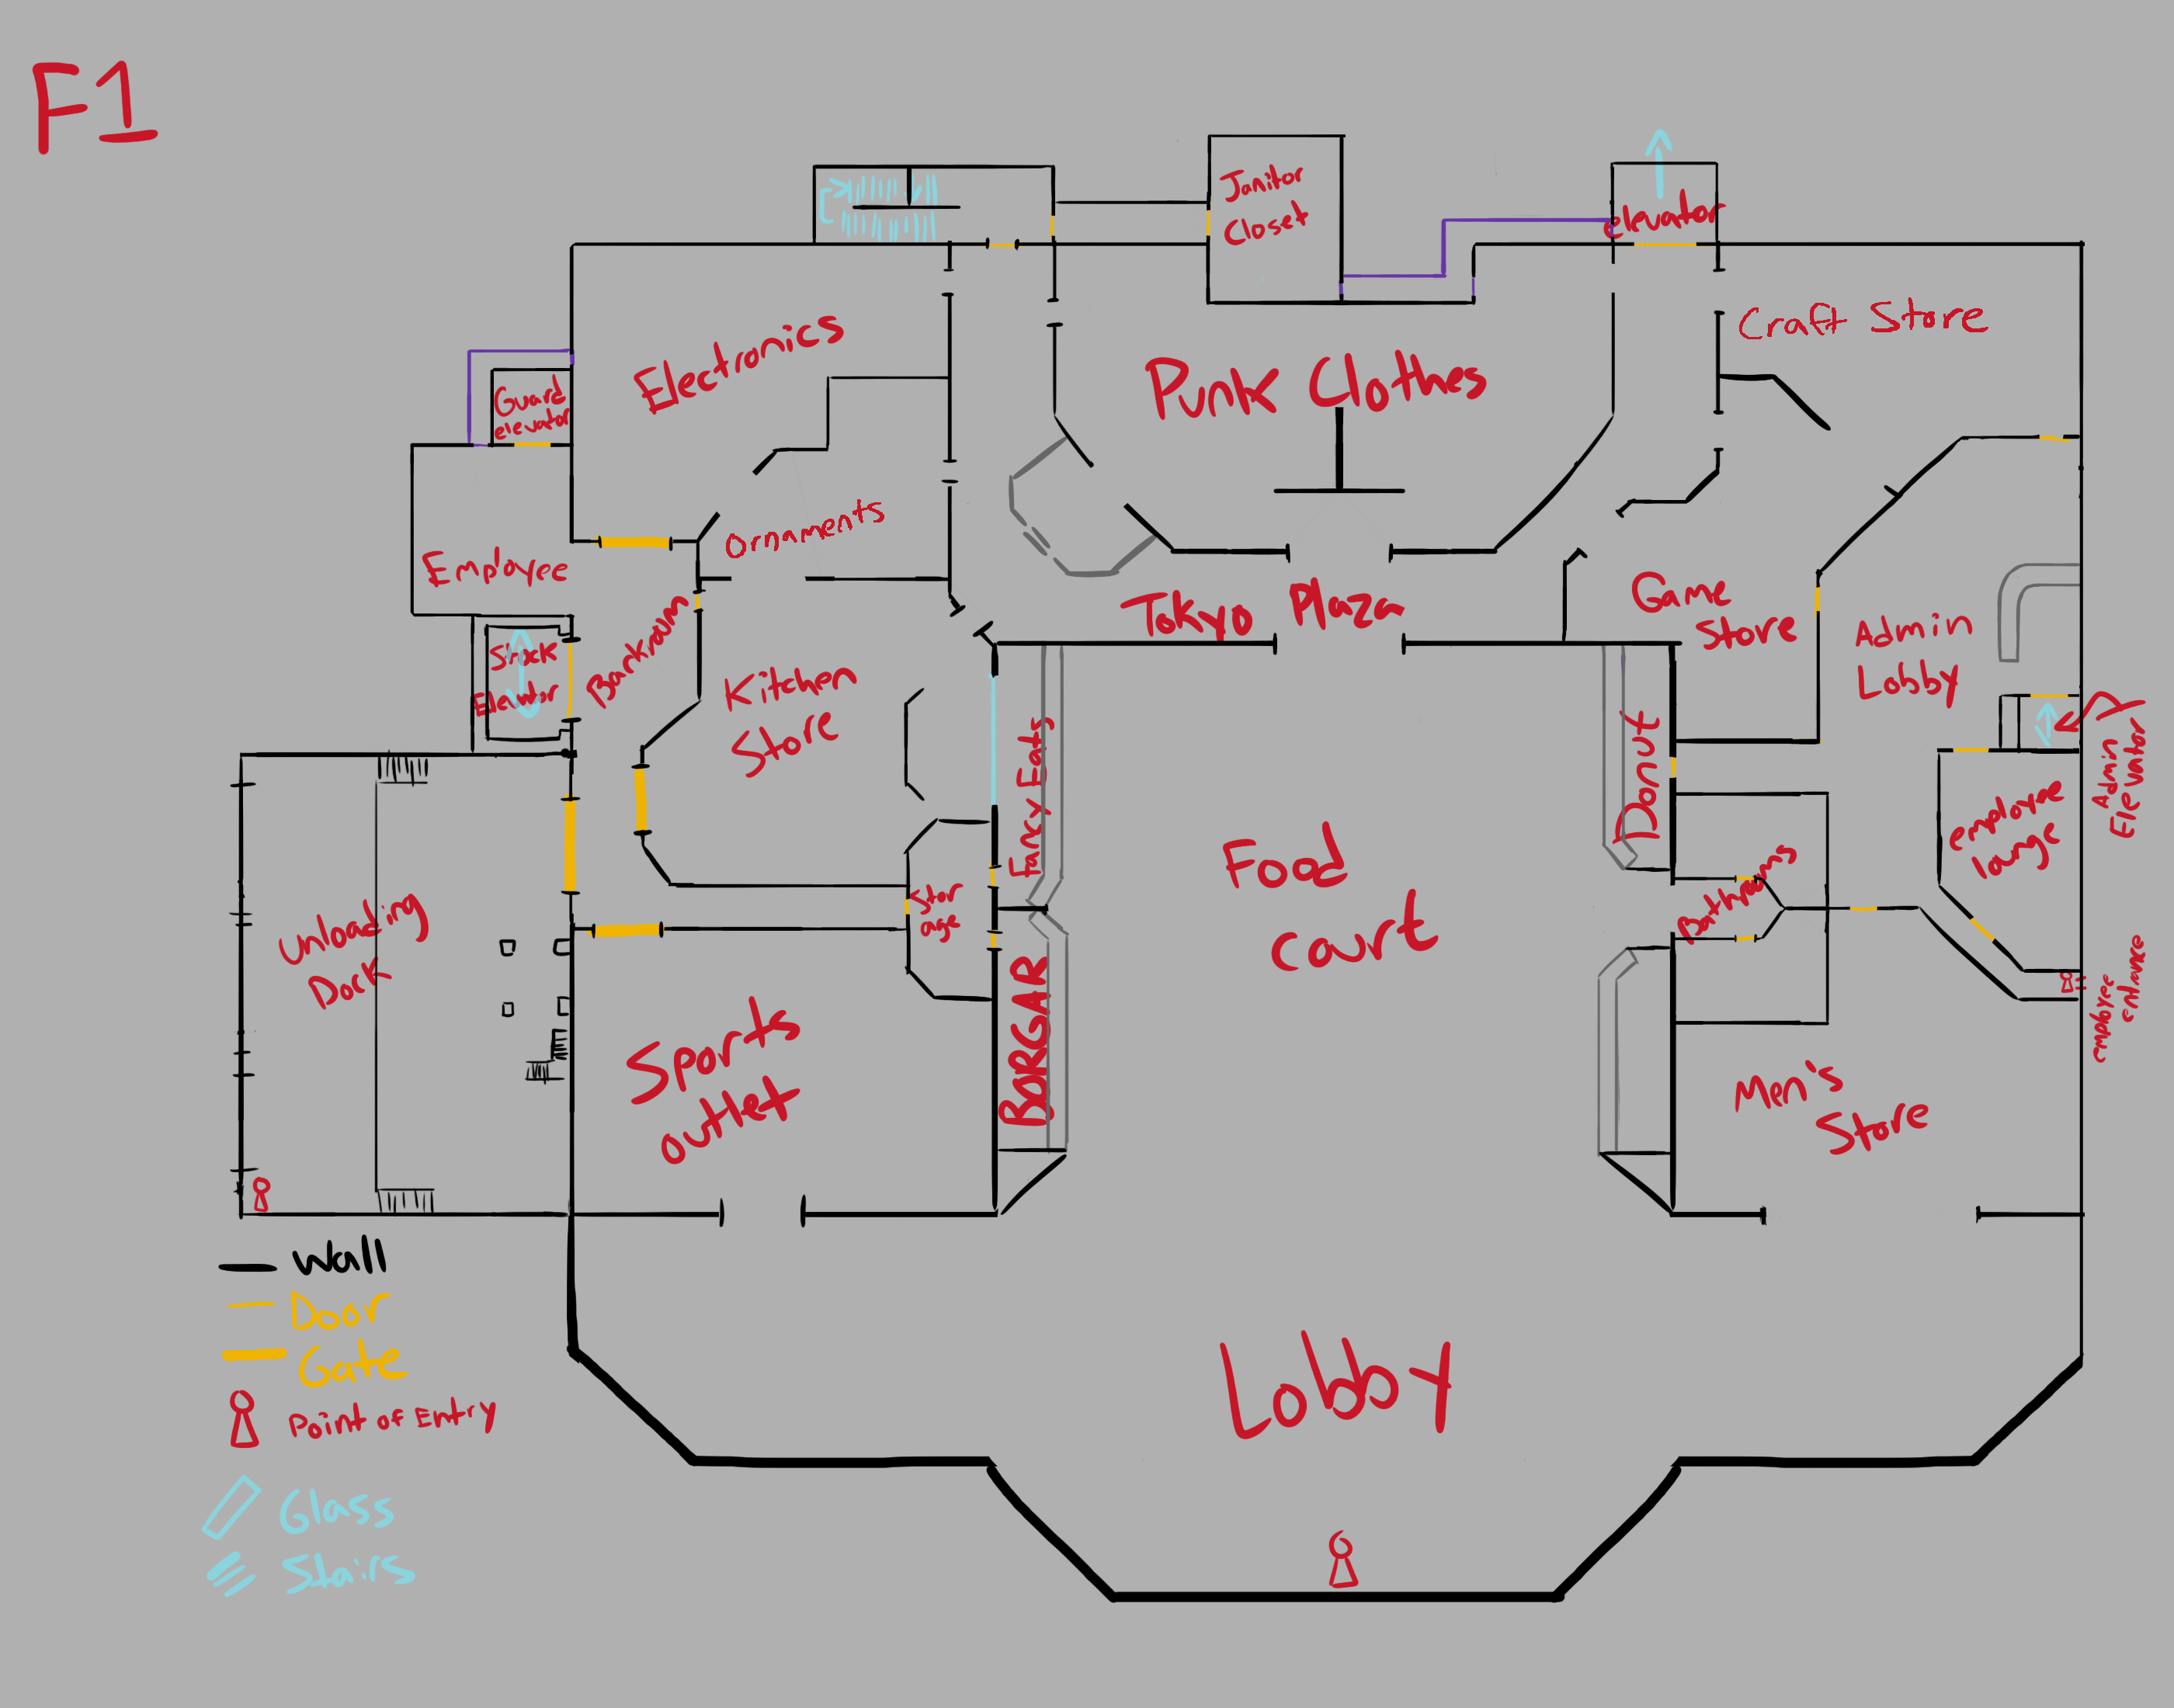 F1
Janitor
Closet
elevator
Electronics
Craft Store
Punk Clothes
Guard
elevator
Ornaments
Employee
Tokyo Plaza
Game
Store
Admin
Lobby
Stock
Elevator
Backroom
Kitchen
Store
Fancy Eats
Donut
Admin
Elevator
employee
lounge
Food
court
Bathrooms
Stor
age
Unloading
Dock
BORGAR
employee
entrance
Sports
outlet
Men's
Store
Wall
Door
Gate
Point of Entry
Glass
Stairs
Lobby